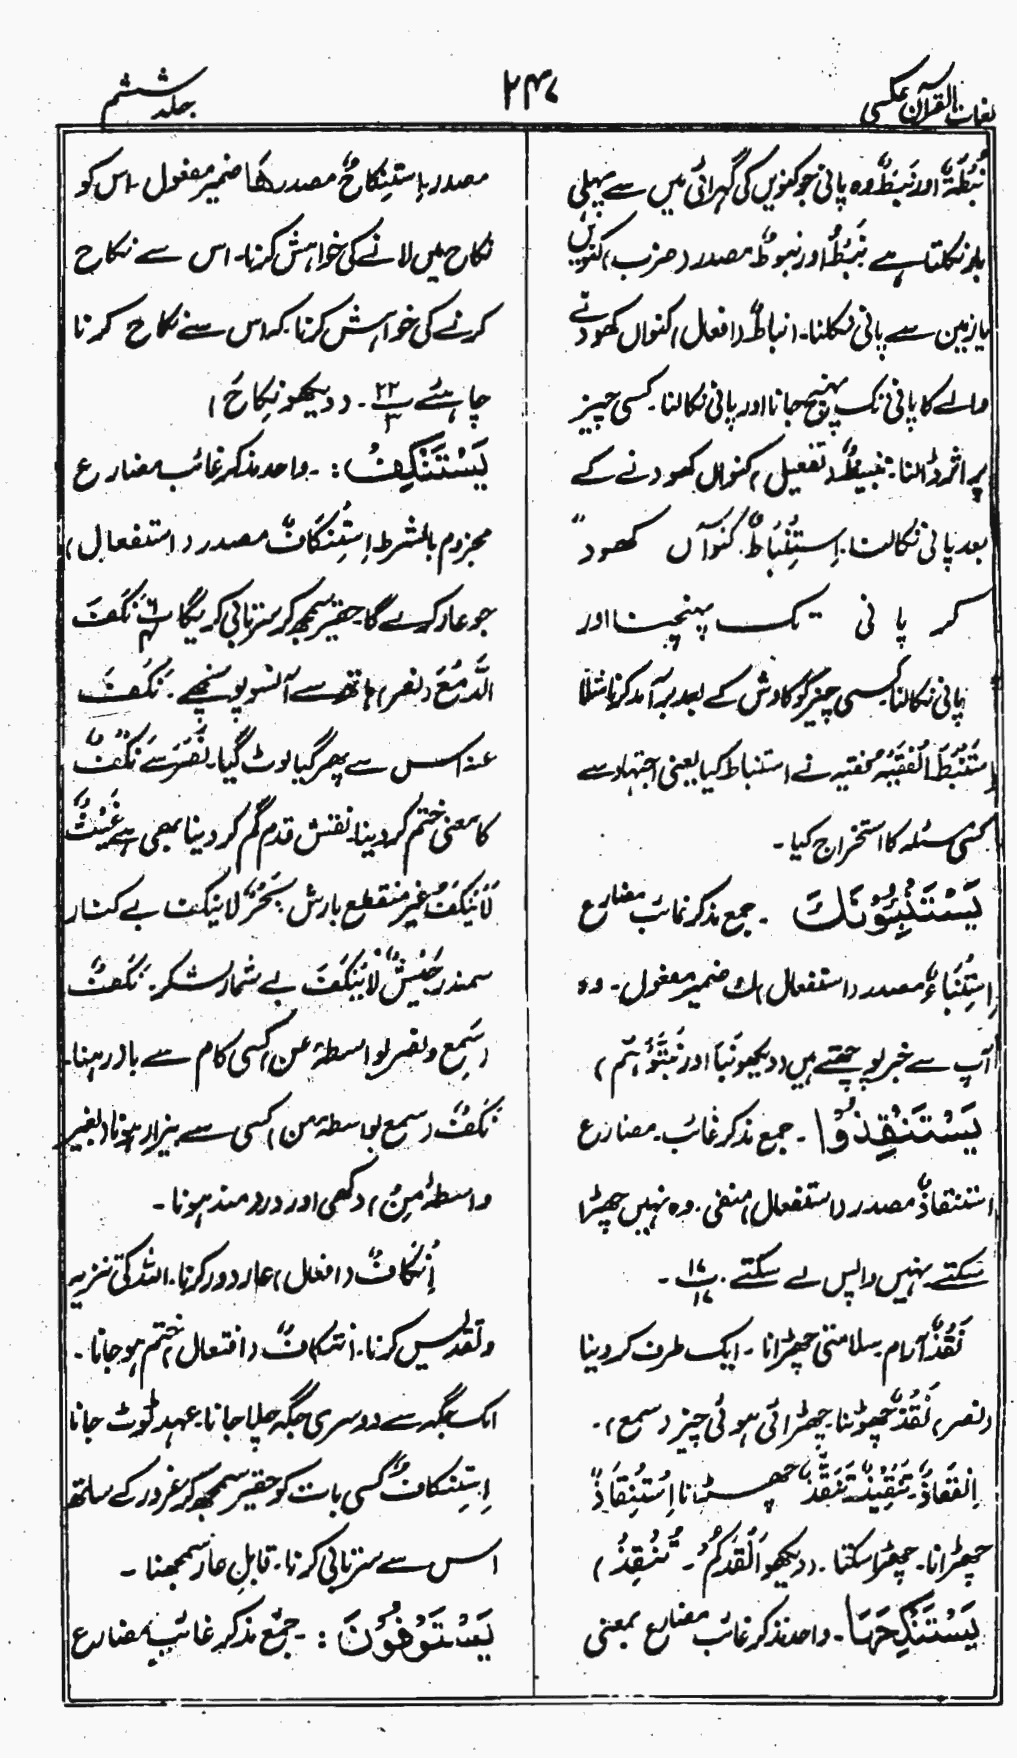 لغات القرآن عکسی
۲۴۷
جلد ششم
نُبْطَۃٌ اور نَبَطٌ وہ پانی جو کنویں کی گہرائی میں سے پہلی
بار نکلتا ہے نَبْطٌ اور نبوطٌ مصدر (ضرب) کنویں
یا زمین سے پانی نکلنا۔ انباطٌ (افعال) کنواں کھودنے
والے کا پانی تک پہنچ جانا اور پانی نکالنا۔ کسی چیز
پر اثر ڈالنا۔ تنبیطٌ (تفعیل) کنواں کھودنے کے
بعد پانی نکالنا۔ اِسْتِنْبَاطٌ۔ کنواں کھود
کر پانی تک پہنچنا اور
پانی نکالنا کسی چیز کو کاوش کے بعد برآمد کرنا مثلاً
اِسْتَنْبَطَ الْفَقِیْہُ فقیہ نے استنباط کیا یعنی اجتہاد سے
کسی مسئلہ کا استخراج کیا۔
یَسْتَنْبِئُوْنَكَ۔ جمع مذکر غائب مضارع
اِسْتِنْبَاءٌ مصدر (استفعال) ك ضمیر مفعول۔ وہ
آپ سے خبر پوچھتے ہیں (دیکھو نَبَأ اور نَبَّؤُھُم)
یَسْتَنْقِذُوْا۔ جمع مذکر غائب۔ مضارع
استنقاذٌ مصدر (استفعال) منفی۔ وہ نہیں چھڑا
سکتے نہیں واپس لے سکتے۔ ۱۷/۱۷۔
نَقْذٌ آرام سلامتی چھڑانا۔ ایک طرف کر دینا
(نصر) نَقْذٌ چھوڑنا۔ چھڑائی ہوئی چیز (سمع)۔
اِنْقَاذٌ۔ تَنْقِیْذٌ۔ تَنَقُّذٌ چھڑانا اِسْتِنْقَاذٌ
چھڑانا۔ چھڑا سکنا۔ (دیکھو اَنْقَذَكُمْ۔ تُنْقِذُ)
یَسْتَنْكِحَہَا۔ واحد مذکر غائب مضارع بمعنی
مصدر اِسْتِنْكَاحٌ مصدر ھَا ضمیر مفعول۔ اس کو
نکاح میں لانے کی خواہش کرنا۔ اس سے نکاح
کرنے کی خواہش کرنا کہ اس سے نکاح کرنا
چاہئے ۲۲/۳۔ (دیکھو نِكَاحَ)
یَسْتَنْكِفْ :۔ واحد مذکر غائب مضارع
مجزوم بالشرط اِسْتِنْكَافٌ مصدر (استفعال)
جو عار کرے گا۔ حقیر سمجھ کر سرتابی کریگا ۶/۴ نَكَفَ
الدَّمْعَ (نصر) ہاتھ سے آنسو پونچھے۔ نَكَفَ
عنہ اس سے پھر گیا لوٹ گیا۔ نَصَرَ سے نَكْفٌ
کا معنی ختم کر دینا۔ نقش قدم گم کر دینا بھی ہے غَیْثٌ
لَا یُنْكَفُ غیر منقطع بارش بَحْرٌ لا ینکف بے کنار
سمندر جَیْشٌ لَا یُنْكَفُ بے شمار لشکر۔ نَكْفٌ
(سَمِع و نصر بواسطہ عن) کسی کام سے باز رہنا۔
نَكَفٌ (سمع بواسطہ من) کسی سے بیزار ہونا (بغیر
واسطۂ مِنْ) دکھی اور درد مند ہونا۔
اِنْكَافٌ (افعال) عار دور کرنا۔ اللہ کی تنزیہ
و تقدیس کرنا۔ انتکافٌ (افتعال) ختم ہو جانا۔
ایک جگہ سے دوسری جگہ چلا جانا۔ عہد ٹوٹ جانا
اِسْتِنْكَافٌ کسی بات کو حقیر سمجھ کر غرور کے ساتھ
اس سے سرتابی کرنا۔ قابلِ عار سمجھنا۔
یَسْتَوْفُوْنَ :۔ جمع مذکر غائب مضارع